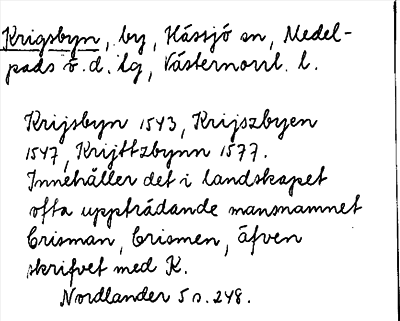 Krigsbyn, by, Hässjö sn, Medel-
pads ö. d. lg, Västernorrl. l.
Krijsbyn 1543, Krijszbyen
1547, Krijttzbynn 1577.
Innehåller det i landskapet
ofta uppträdande mansnamnet
Crisman, Crismen, äfven
skrifvet med K.
Nordlander 5 s. 248.